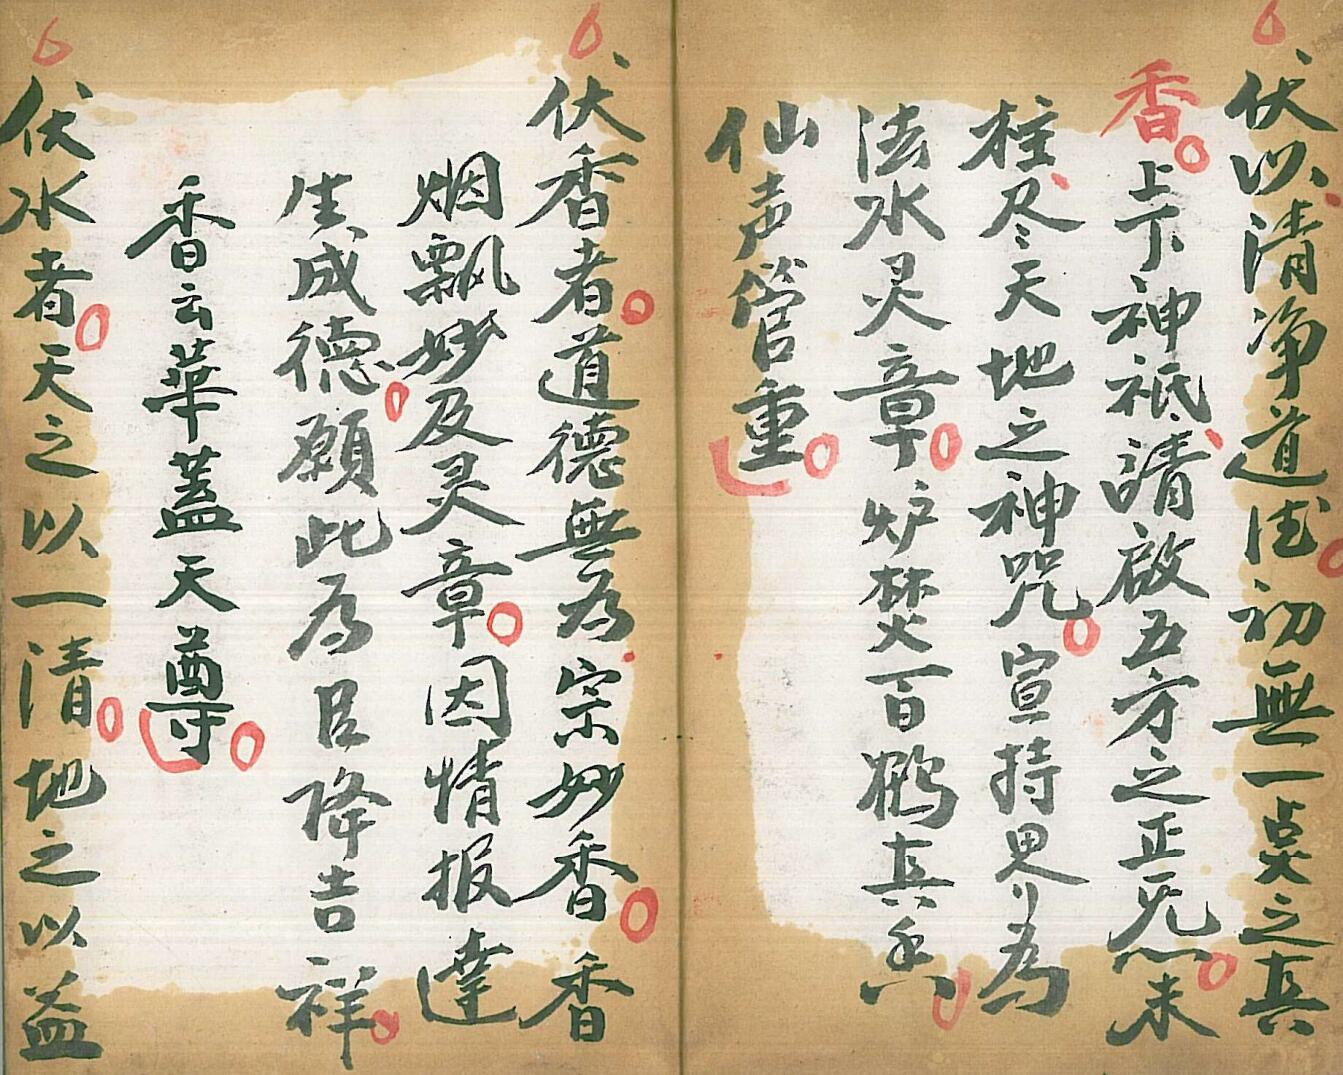 伏以清净道法初無一炁之真
香上下神祇請啟五方之正炁未
柱尽天地之神咒宣持男为
法水灵章炉焚百鹤真香
仙声管重
伏香者道德無为宗妙香香
烟飘妙及灵章因情报達
生成德願此为臣降吉祥
香云華蓋天尊
伏水者天之以一清地之以益